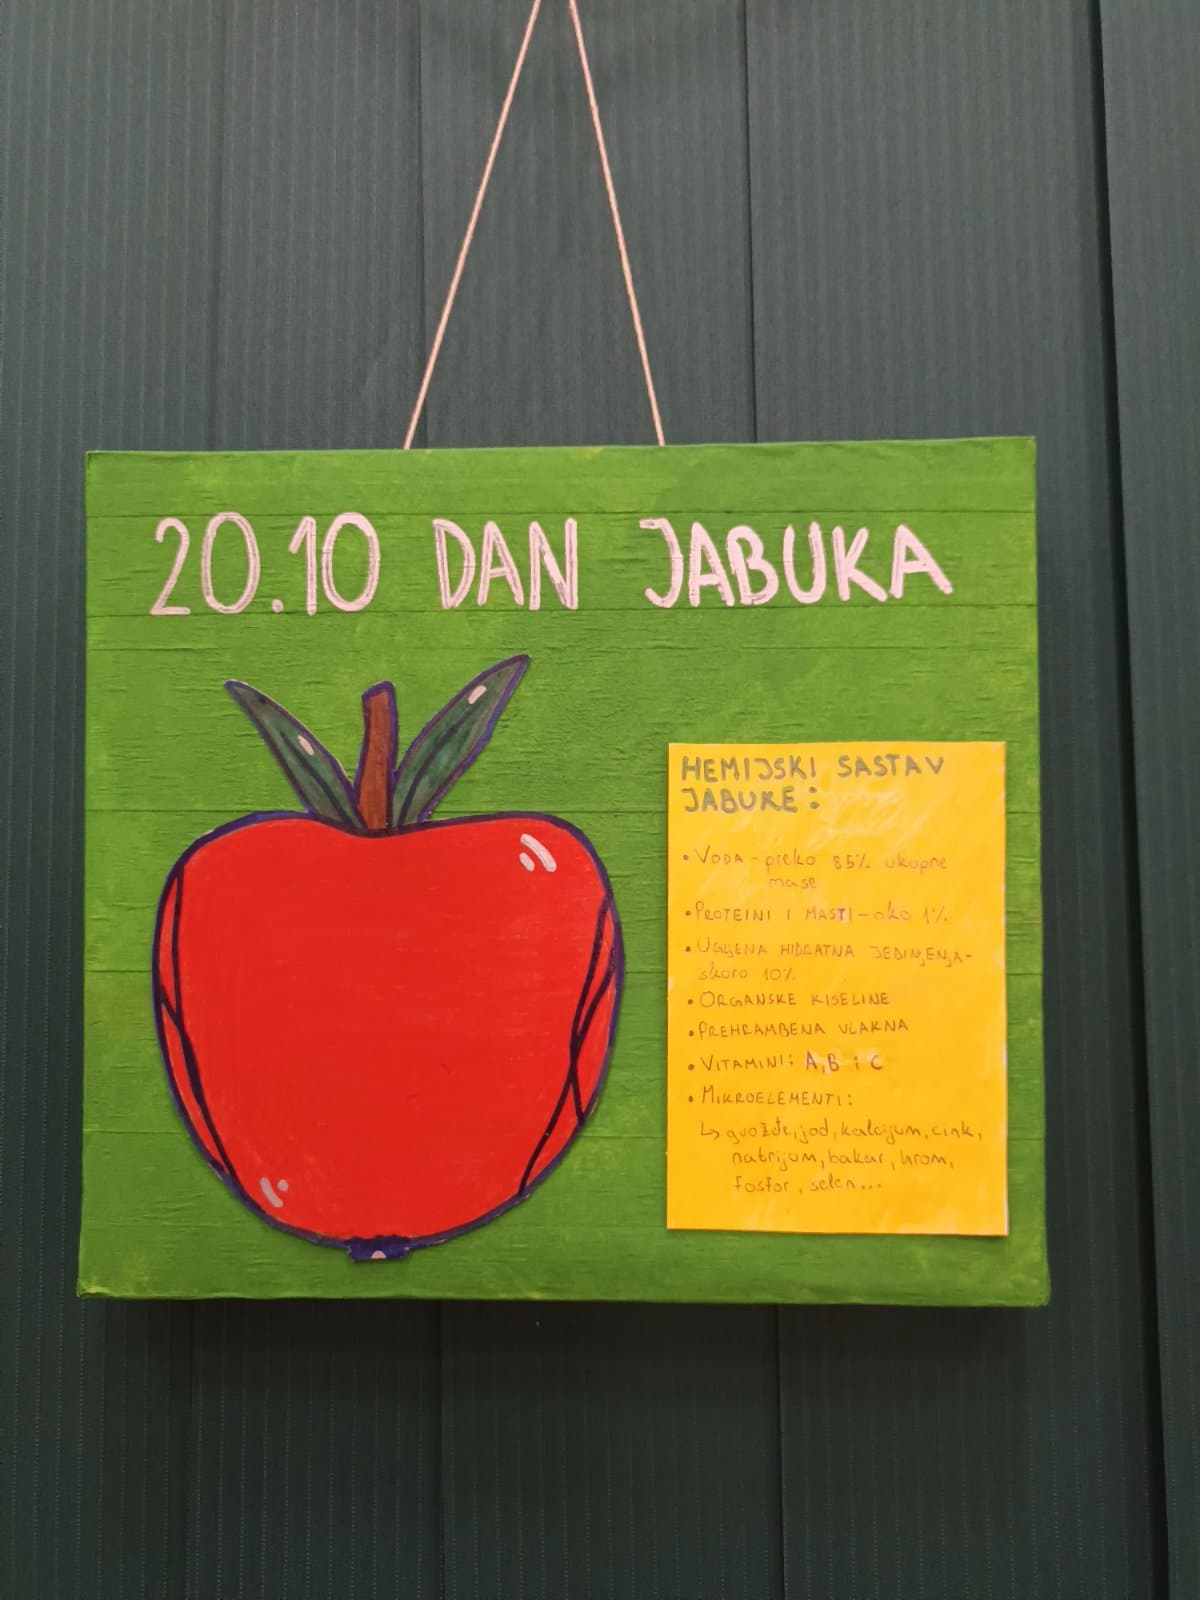 20.10 DAN JABUKA
HEMIJSKI SASTAV
JABUKE:
• VODA - preko 85% ukupne
mase
• PROTEINI I MASTI - oko 1%
• UGLJENA HIDRATNA JEDINJENJA-
skoro 10%
• ORGANSKE KISELINE
• PREHRAMBENA VLAKNA
• VITAMINI: A, B i C
• MIKROELEMENTI:
↳ gvožđe, jod, kalcijum, cink,
natrijum, bakar, hrom,
fosfor, selen...